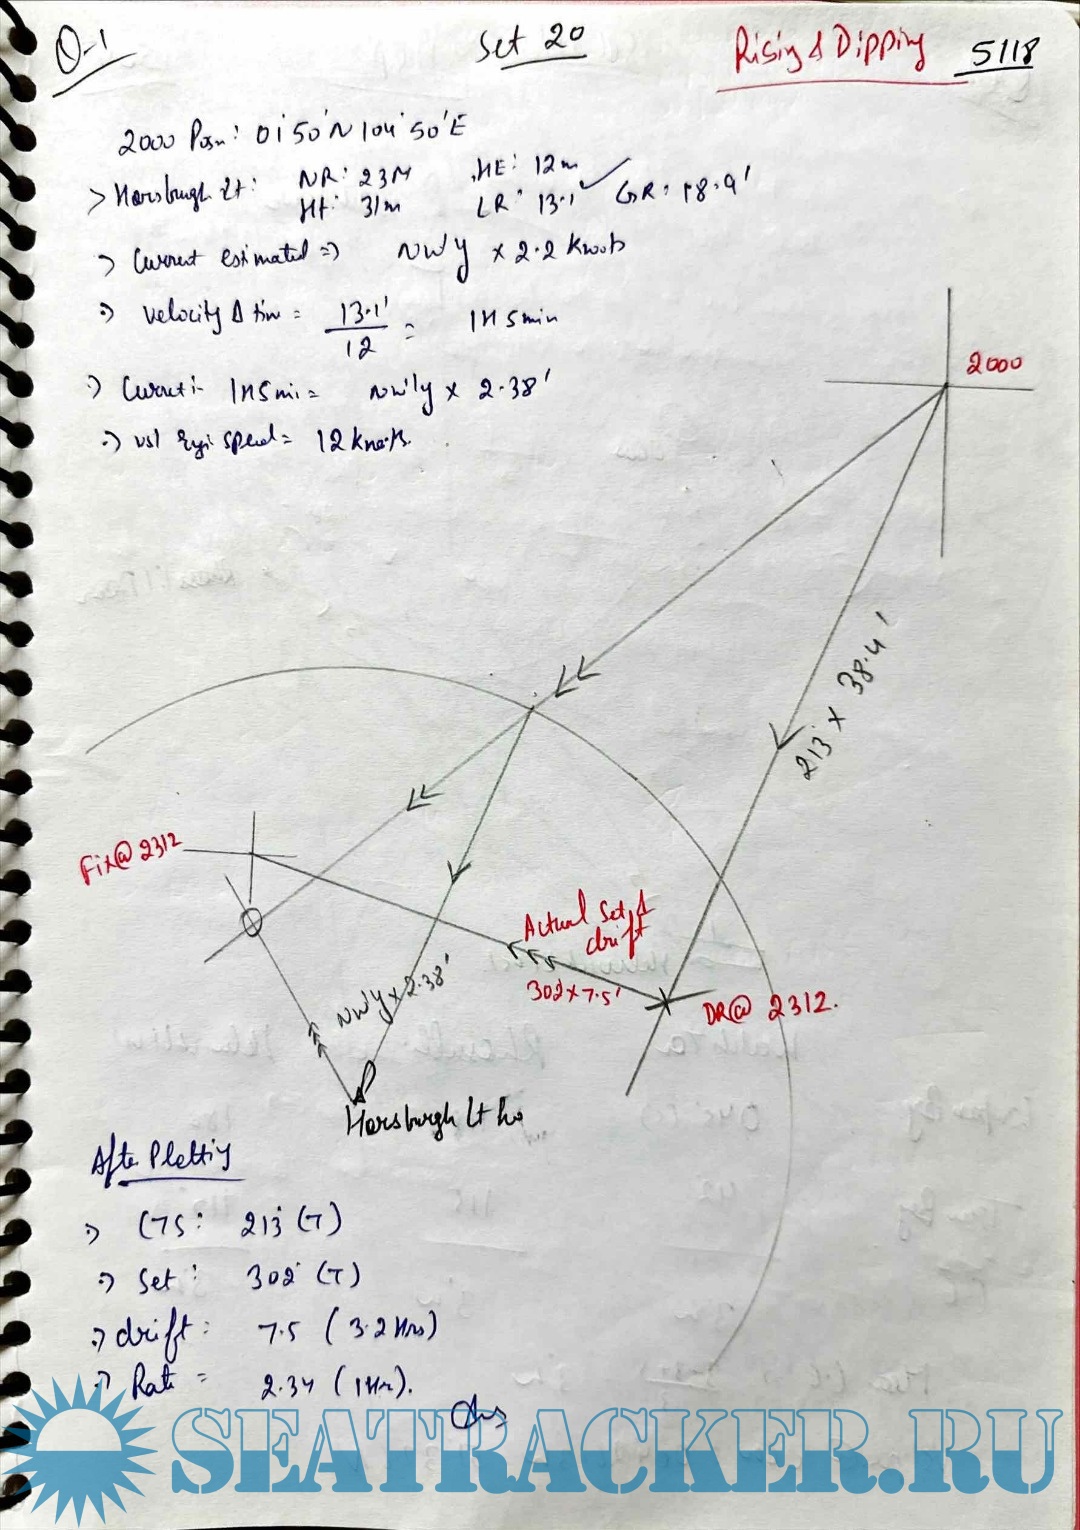 Q-1
Set 20
Rising & Dipping 5118
2000 Posn: 01°50'N 104°50'E
> Horsburgh Lt: NR: 23M HE: 12m
Ht: 31m LR: 13.1 GR: 18.9'
=> Current estimated => NW'y x 2.2 knots
=> Velocity & time = 13.1' / 12 = 1H 5min
=> Current:- 1H5min = NW'ly x 2.38'
=> vsl Eng: speed = 12 knots.
2000
213° x 38.4'
Fix@ 2312
Actual Set &
drift
302 x 7.5'
DR@ 2312.
NW'y x 2.38'
Horsburgh Lt ho
After Plotting
=> CTS: 213° (T)
=> Set: 302° (T)
=> drift: 7.5 (3.2 Hrs)
=> Rate = 2.34 (1Hr).
Ans
SEATRACKER.RU